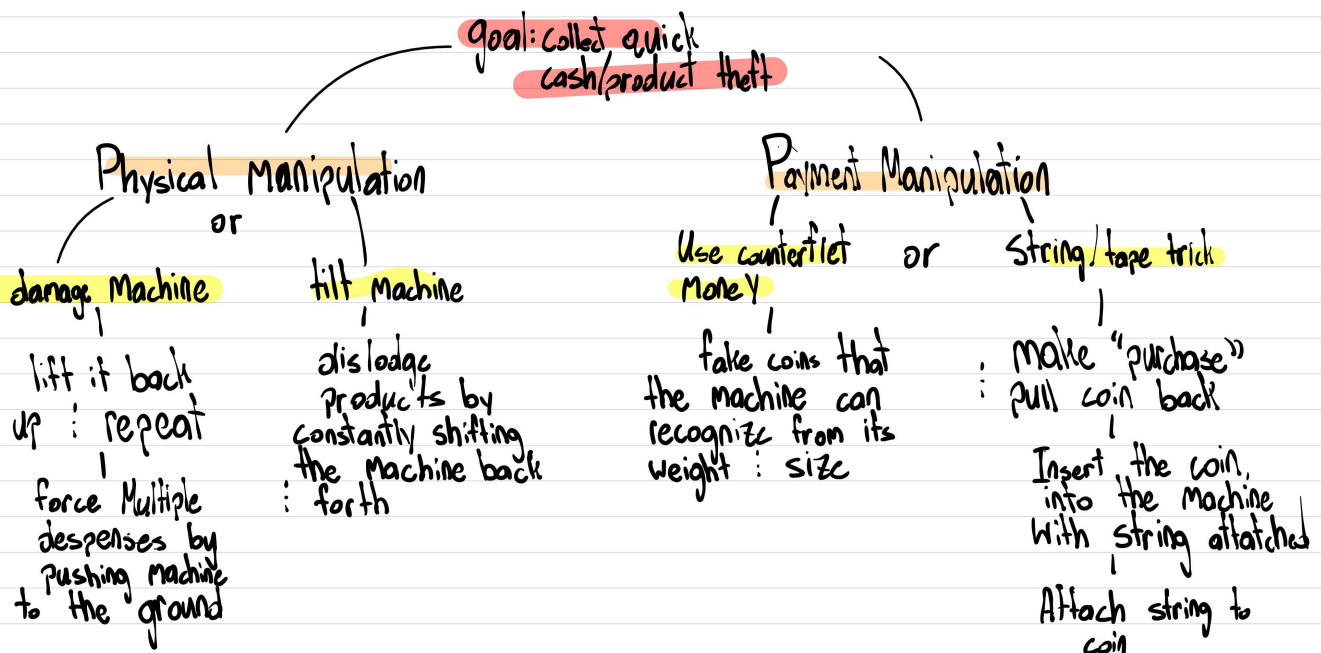 goal: collect quick
cash/product theft
Physical Manipulation
or
damage Machine
tilt Machine
lift it back
up : repeat
force Multiple
despenses by
pushing machine
to the ground
dislodge
products by
constantly shifting
the machine back
: forth
Payment Manipulation
Use counterfiet
Money
or
String/tape trick
fake coins that
the machine can
recognize from its
weight : size
: make "purchase"
: pull coin back
Insert the coin,
into the machine
with string attatched
Attach string to
coin